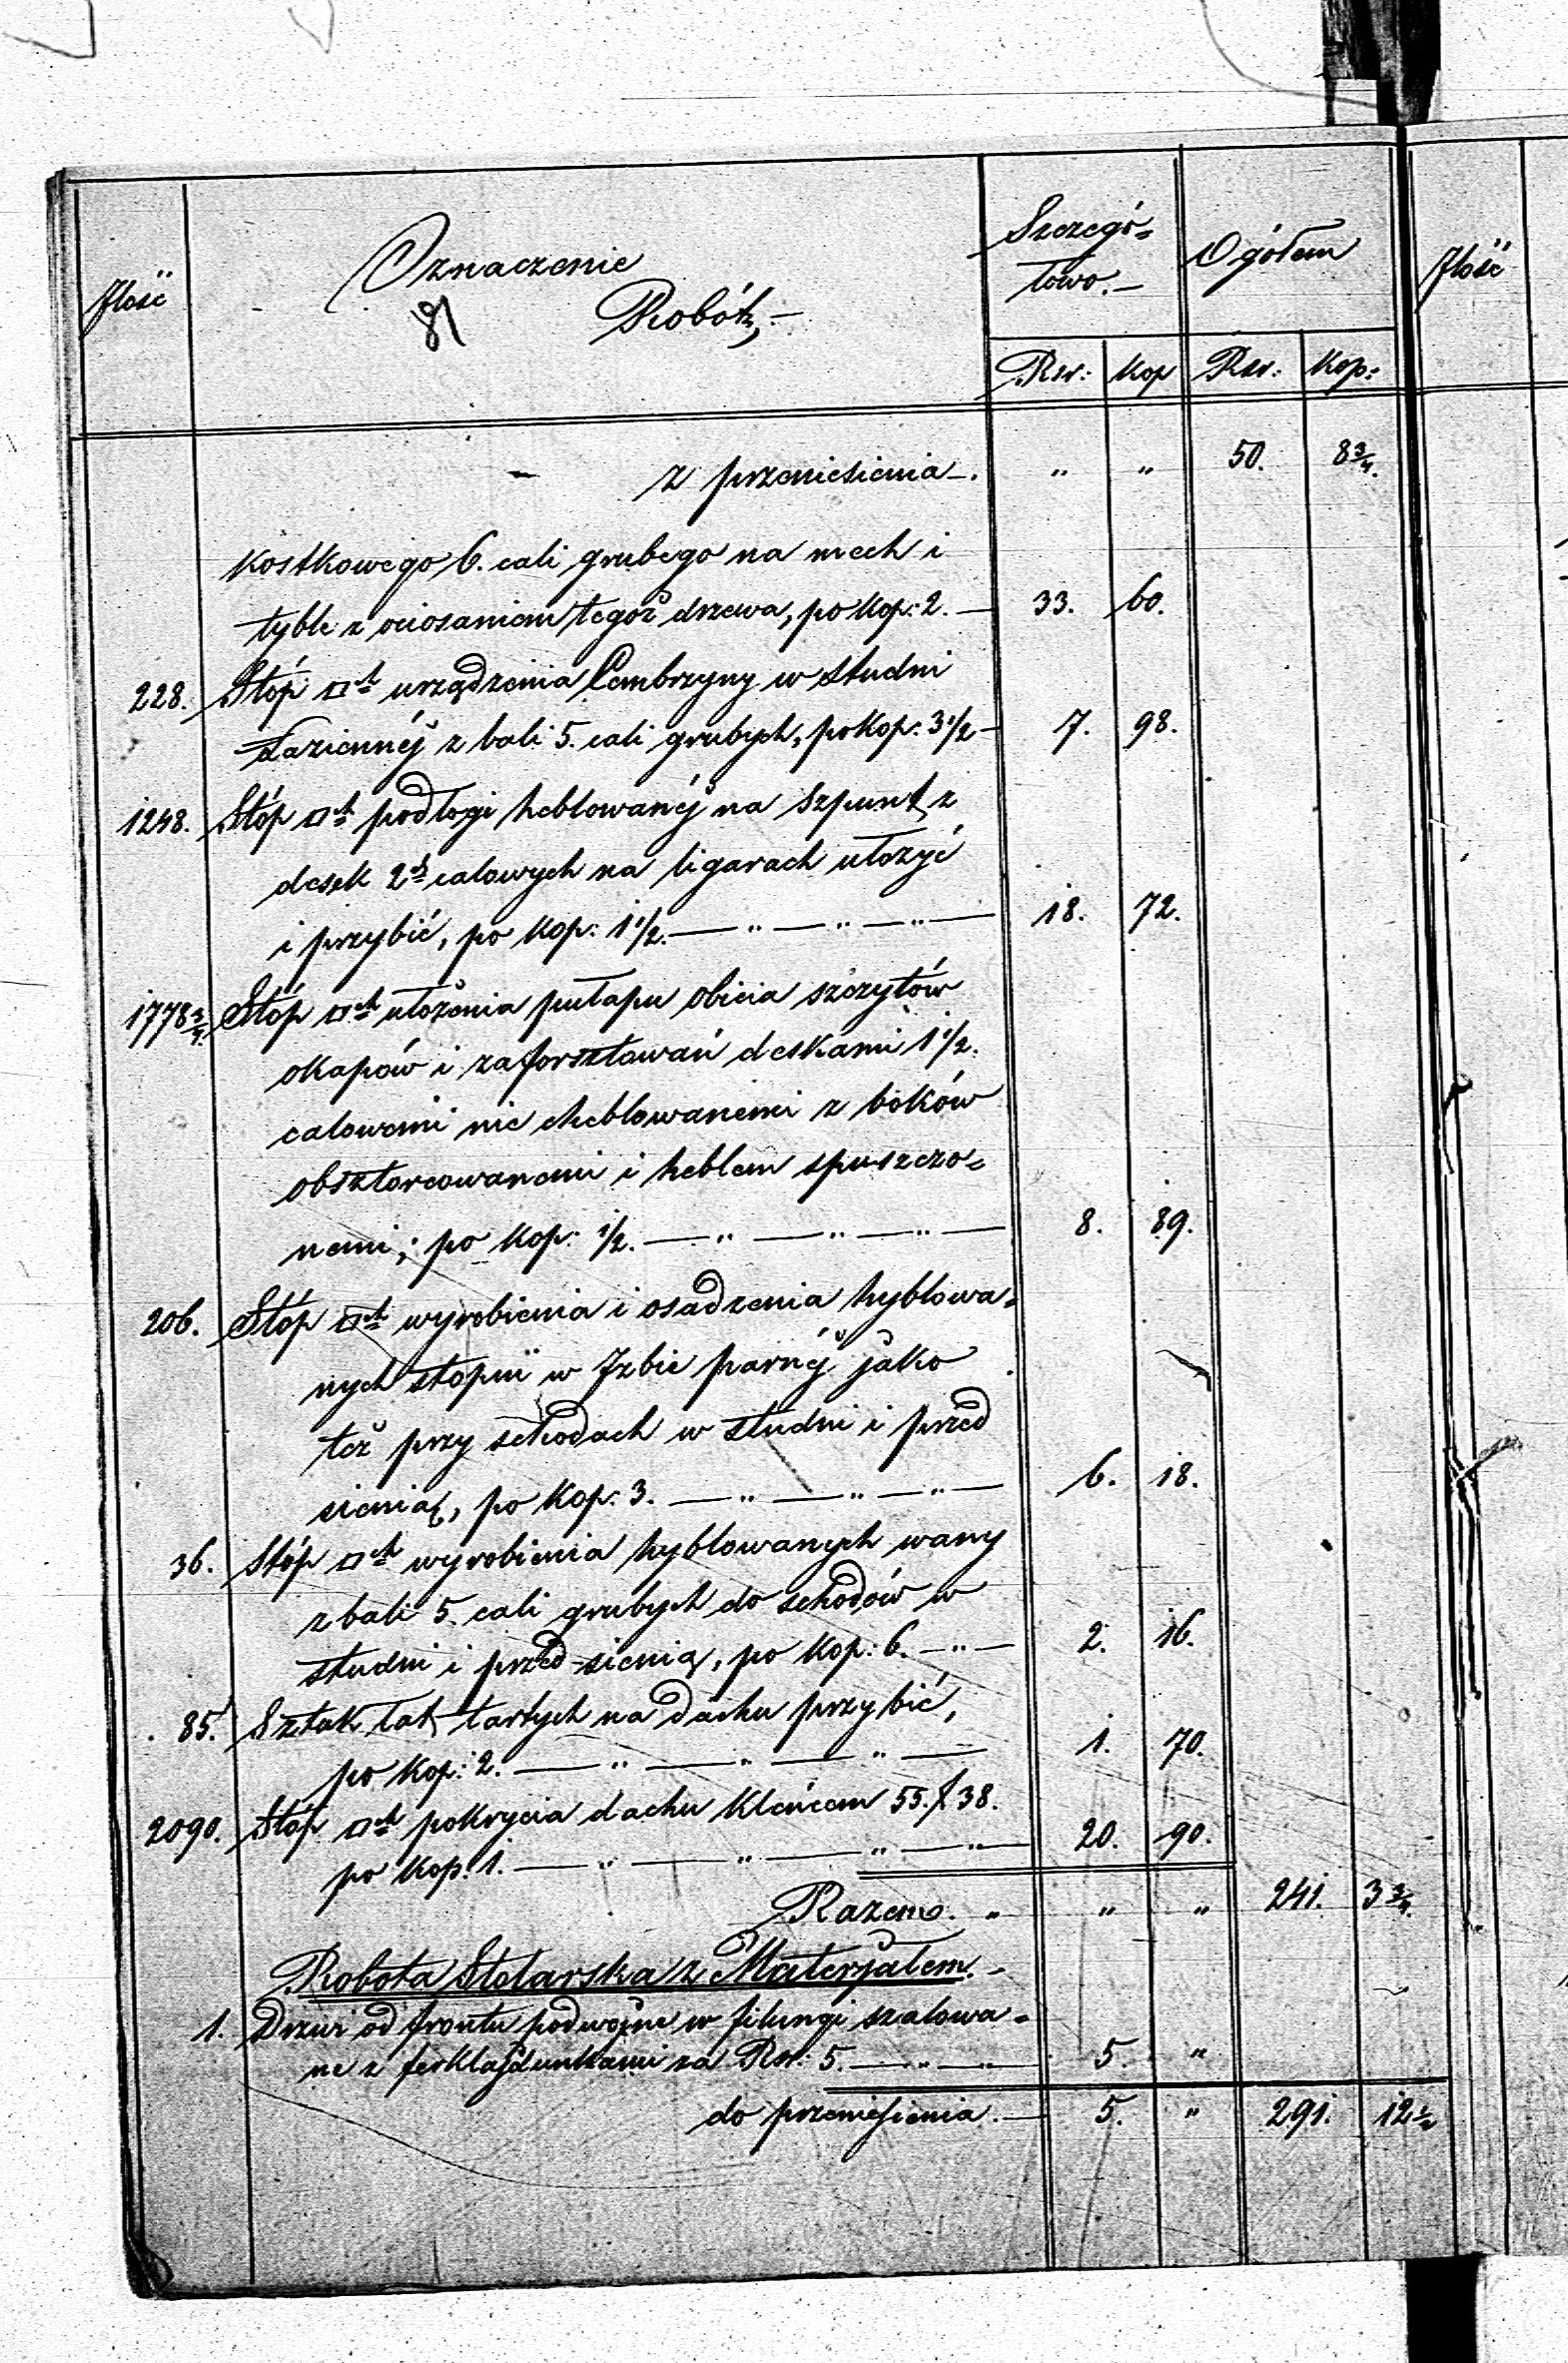 Ilość
Oznaczenie
Robót,—
81
Szczegó-
łowo.—
Ogółem
Ilość
Rsr: Kop Rsr: Kop:
z przeniesienia—. " " 50. 8 3/4.
kostkowego 6. cali grubego na mech i
tyble z ociosaniem tegoż drzewa, po kop: 2.— 33. 60.
228. Stóp □ch urządzenia Cembrzyny w studni
Łaziennéj z bali 5. cali grubych, po kop: 3 1/2— 7. 98.
1248. Stóp □ch podłogi heblowanéj na szpunt z
desek 2ch calowych na ligarach ułożyć
i przybić, po kop: 1 1/2.— " — " — " — 18. 72.
1778 3/4. Stóp □ch ułożenia pułapu obicia szczytów
okapów i zaforsztowań deskami 1 1/2.
calowemi nie cheblowanemi z boków
obsztorcowanemi i heblem spuszczo-
nemi; po kop: 1/2.— " — " — " — 8. 89.
206. Stóp □ch wyrobienia i osadzenia hyblowa-
nych stopni w Izbie parnéj jako
też przy schodach w studni i przed
sienią, po kop: 3.— " — " — " — 6. 18.
36. Stóp □ch wyrobienia hyblowanych wany
z bali 5. cali grubych do schodów w
studni i przed-sienią, po kop: 6.— " — 2. 16.
85. Sztuk łat tartych na dachu przybić,
po kop: 2.— " — " — " — 1. 70.
2090. Stóp □ch pokrycia dachu kleńcem 55. f 38.
po kop: 1.— " — " — " — " — 20. 90.
Razem. " " " 241. 3 3/4.
Robota Stolarska z Materjałem.—
1. Drzwi od frontu podwójne w filungi szalowa-
ne z ferklajdunkami za Rsr: 5.— " — " — 5. "
do przeniesienia.— 5. " 291. 12 1/2